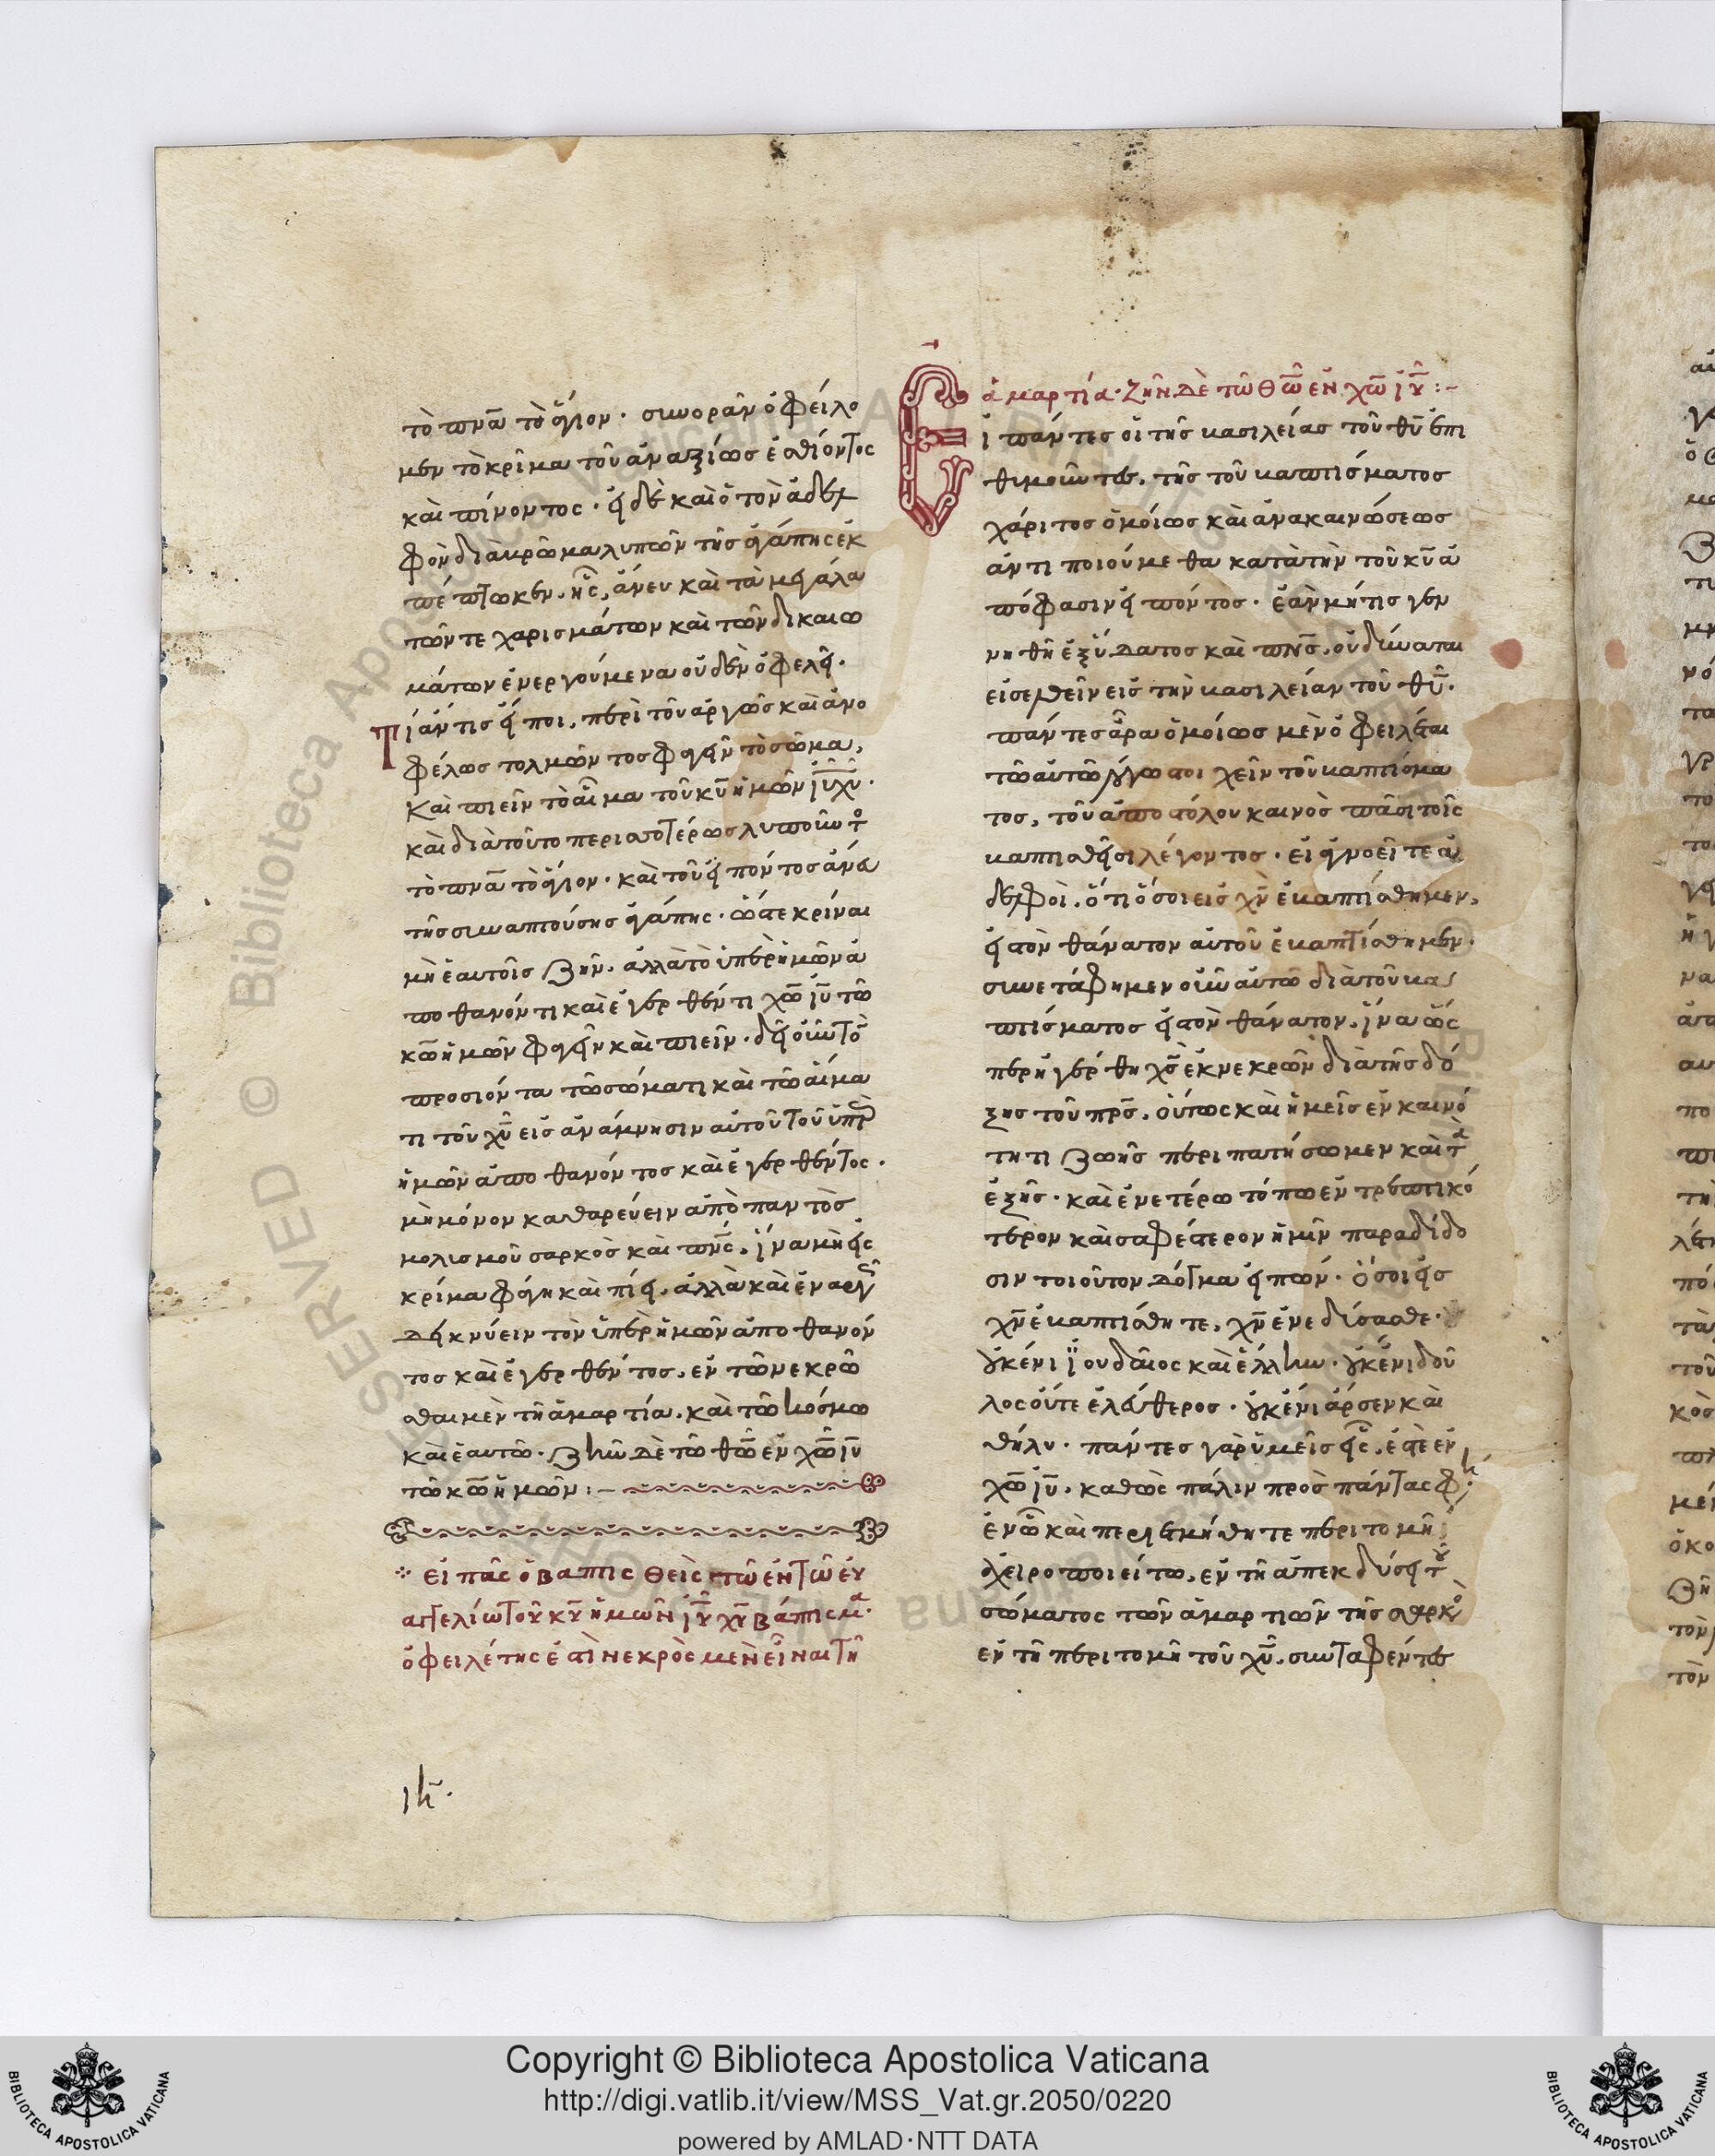 τὸ πνᾶ τὸ ἅγιον· συνορᾶν ὀφείλο
μεν τὸ κρῖμα τοῦ ἀναξίως ἐσθίοντος
καὶ πίνοντος· εἰ δὲ καὶ ὁ τὸν ἀδελ
φὸν διὰ βρῶμα λυπῶν τῆς ἀγάπης ἐκ
πέπτωκεν, ἧς ἄνευ καὶ τὰ μεγάλα
τῶν τε χαρισμάτων καὶ τῶν δικαιω
μάτων ἐνεργούμενα οὐδὲν ὀφελεῖ·
Τί ἄν τις εἴποι, περὶ τοῦ ἀργῶς καὶ ἀνο
φέλως τολμῶντος φαγεῖν τὸ σῶμα,
καὶ πιεῖν τὸ αἷμα τοῦ κῦ ἡμῶν ἰῦ χῦ·
καὶ διὰ τοῦτο περισσοτέρως λυποῦντο
τὸ πνᾶ τὸ ἅγιον· καὶ τοῦ εἰπόντος ἄνευ
τῆς συναπτούσης ἀγάπης· ὥστε κρίναι
μὴ ἑαυτοῖς ζῆν, ἀλλὰ τῷ ὑπὲρ ἡμῶν ἀ
ποθανόντι καὶ ἐγερθέντι χῶ ἰῦ τῶ
κῶ ἡμῶν φαγεῖν καὶ πιεῖν· δεῖ οὖν τὸ
προσιόντα τῶ σώματι καὶ τῶ αἵμα
τι τοῦ χῦ εἰς ἀνάμνησιν αὐτοῦ τοῦ ὑπὲρ
ἡμῶν ἀποθανόντος καὶ ἐγερθέντος·
μὴ μόνον καθαρεύειν ἀπὸ παντὸς
μολυσμοῦ σαρκὸς καὶ πνς, ἵνα μὴ εἰς
κρίμα φάγη καὶ πίει, ἀλλὰ καὶ ἐναργῶς
δεικνύειν τὸν ὑπὲρ ἡμῶν ἀποθανόν
τος καὶ ἐγερθέντος, ἐν τῶ νεκρῶ
σθαι μὲν τῆ ἁμαρτία, καὶ τῶ κόσμω
καὶ ἑαυτῶ· ζῆν δὲ τῶ θῶ ἐν χῶ ἰῦ
τῶ κῶ ἡμῶν:–
εἰ πᾶς ὁ βαπτισθεὶς τῶ ἐν τῶ εὐ
αγγελίω τοῦ κῦ ἡμῶν ἰῦ χῦ βάπτισμα
ὀφειλέτης ἐστὶ νεκρὸς μὲν εἶναι τῆ
ἁμαρτία· ζῆν δὲ τῶ θῶ ἐν χῶ ἰῦ:–
Εἰ πάντες οἱ τῆς βασιλείας τοῦ θῦ ἐπι
θυμοῦντες, τῆς τοῦ βαπτίσματος
χάριτος ὁμοίως καὶ ἀνακαινώσεως
ἀντιποιούμεθα κατὰ τὴν τοῦ κῦ ἀ
πόφασιν εἰπόντος· ἐὰν μή τις γεν
νηθῆ ἐξ ὕδατος καὶ πνς, οὐ δύναται
εἰσελθεῖν εἰς τὴν βασιλείαν τοῦ θῦ·
πάντες ἄρα ὁμοίως μὲν ὀφειλέται
τῶ αὐτῶ λόγω στοιχεῖν τοῦ βαπτίσμα
τος, τοῦ ἀποστόλου κοινῶς πᾶσι τοῖς
βαπτισθεῖσι λέγοντος· εἰ ἀγνοεῖτε ἀ
δελφοὶ, ὅτι ὅσοι εἰς χν ἐβαπτίσθημεν,
εἰς τὸν θάνατον αὐτοῦ ἐβαπτίσθημεν·
συνετάφημεν οὖν αὐτῶ διὰ τοῦ βα
πτίσματος εἰς τὸν θάνατον, ἵνα ὥς
περ ἠγέρθη χς ἐκ νεκρῶν διὰ τῆς δό
ξης τοῦ πρς, οὕτως καὶ ἡμεῖς ἐν καινό
τητι ζωῆς περιπατήσωμεν καὶ τὰ
ἑξῆς· καὶ ἐν ἑτέρω τόπω ἐντρεπτικό
τερον καὶ σαφέστερον ἡμῖν παραδίδο
σιν τοιοῦτον δόγμα εἰπών· ὅσοι εἰς
χν ἐβαπτίσθητε, χν ἐνεδύσασθε·
οὐκ ἔνι ἰουδαῖος καὶ ἕλλην· οὐκ ἔνι δοῦ
λος οὔτε ἐλεύθερος· οὐκ ἔνι ἄρσεν καὶ
θῆλυ· πάντες γὰρ ὑμεῖς εἷς, ἐστὲ ἐν
χῶ ἰῦ, καθὼς πάλιν πρὸς πάντας φη
ἐν ὧ καὶ περιετμήθητε περιτομῆ
ἀχειροποιείτω, ἐν τῆ ἀπεκδύσει τοῦ
σώματος τῶν ἁμαρτιῶν τῆς σαρκὸ
ἐν τῆ περιτομῆ τοῦ χῦ, συνταφέντες
ιη·
Copyright © Biblioteca Apostolica Vaticana
http://digi.vatlib.it/view/MSS_Vat.gr.2050/0220
powered by AMLAD·NTT DATA
BIBLIOTECA APOSTOLICA VATICANA
BIBLIOTECA APOSTOLICA VATICANA